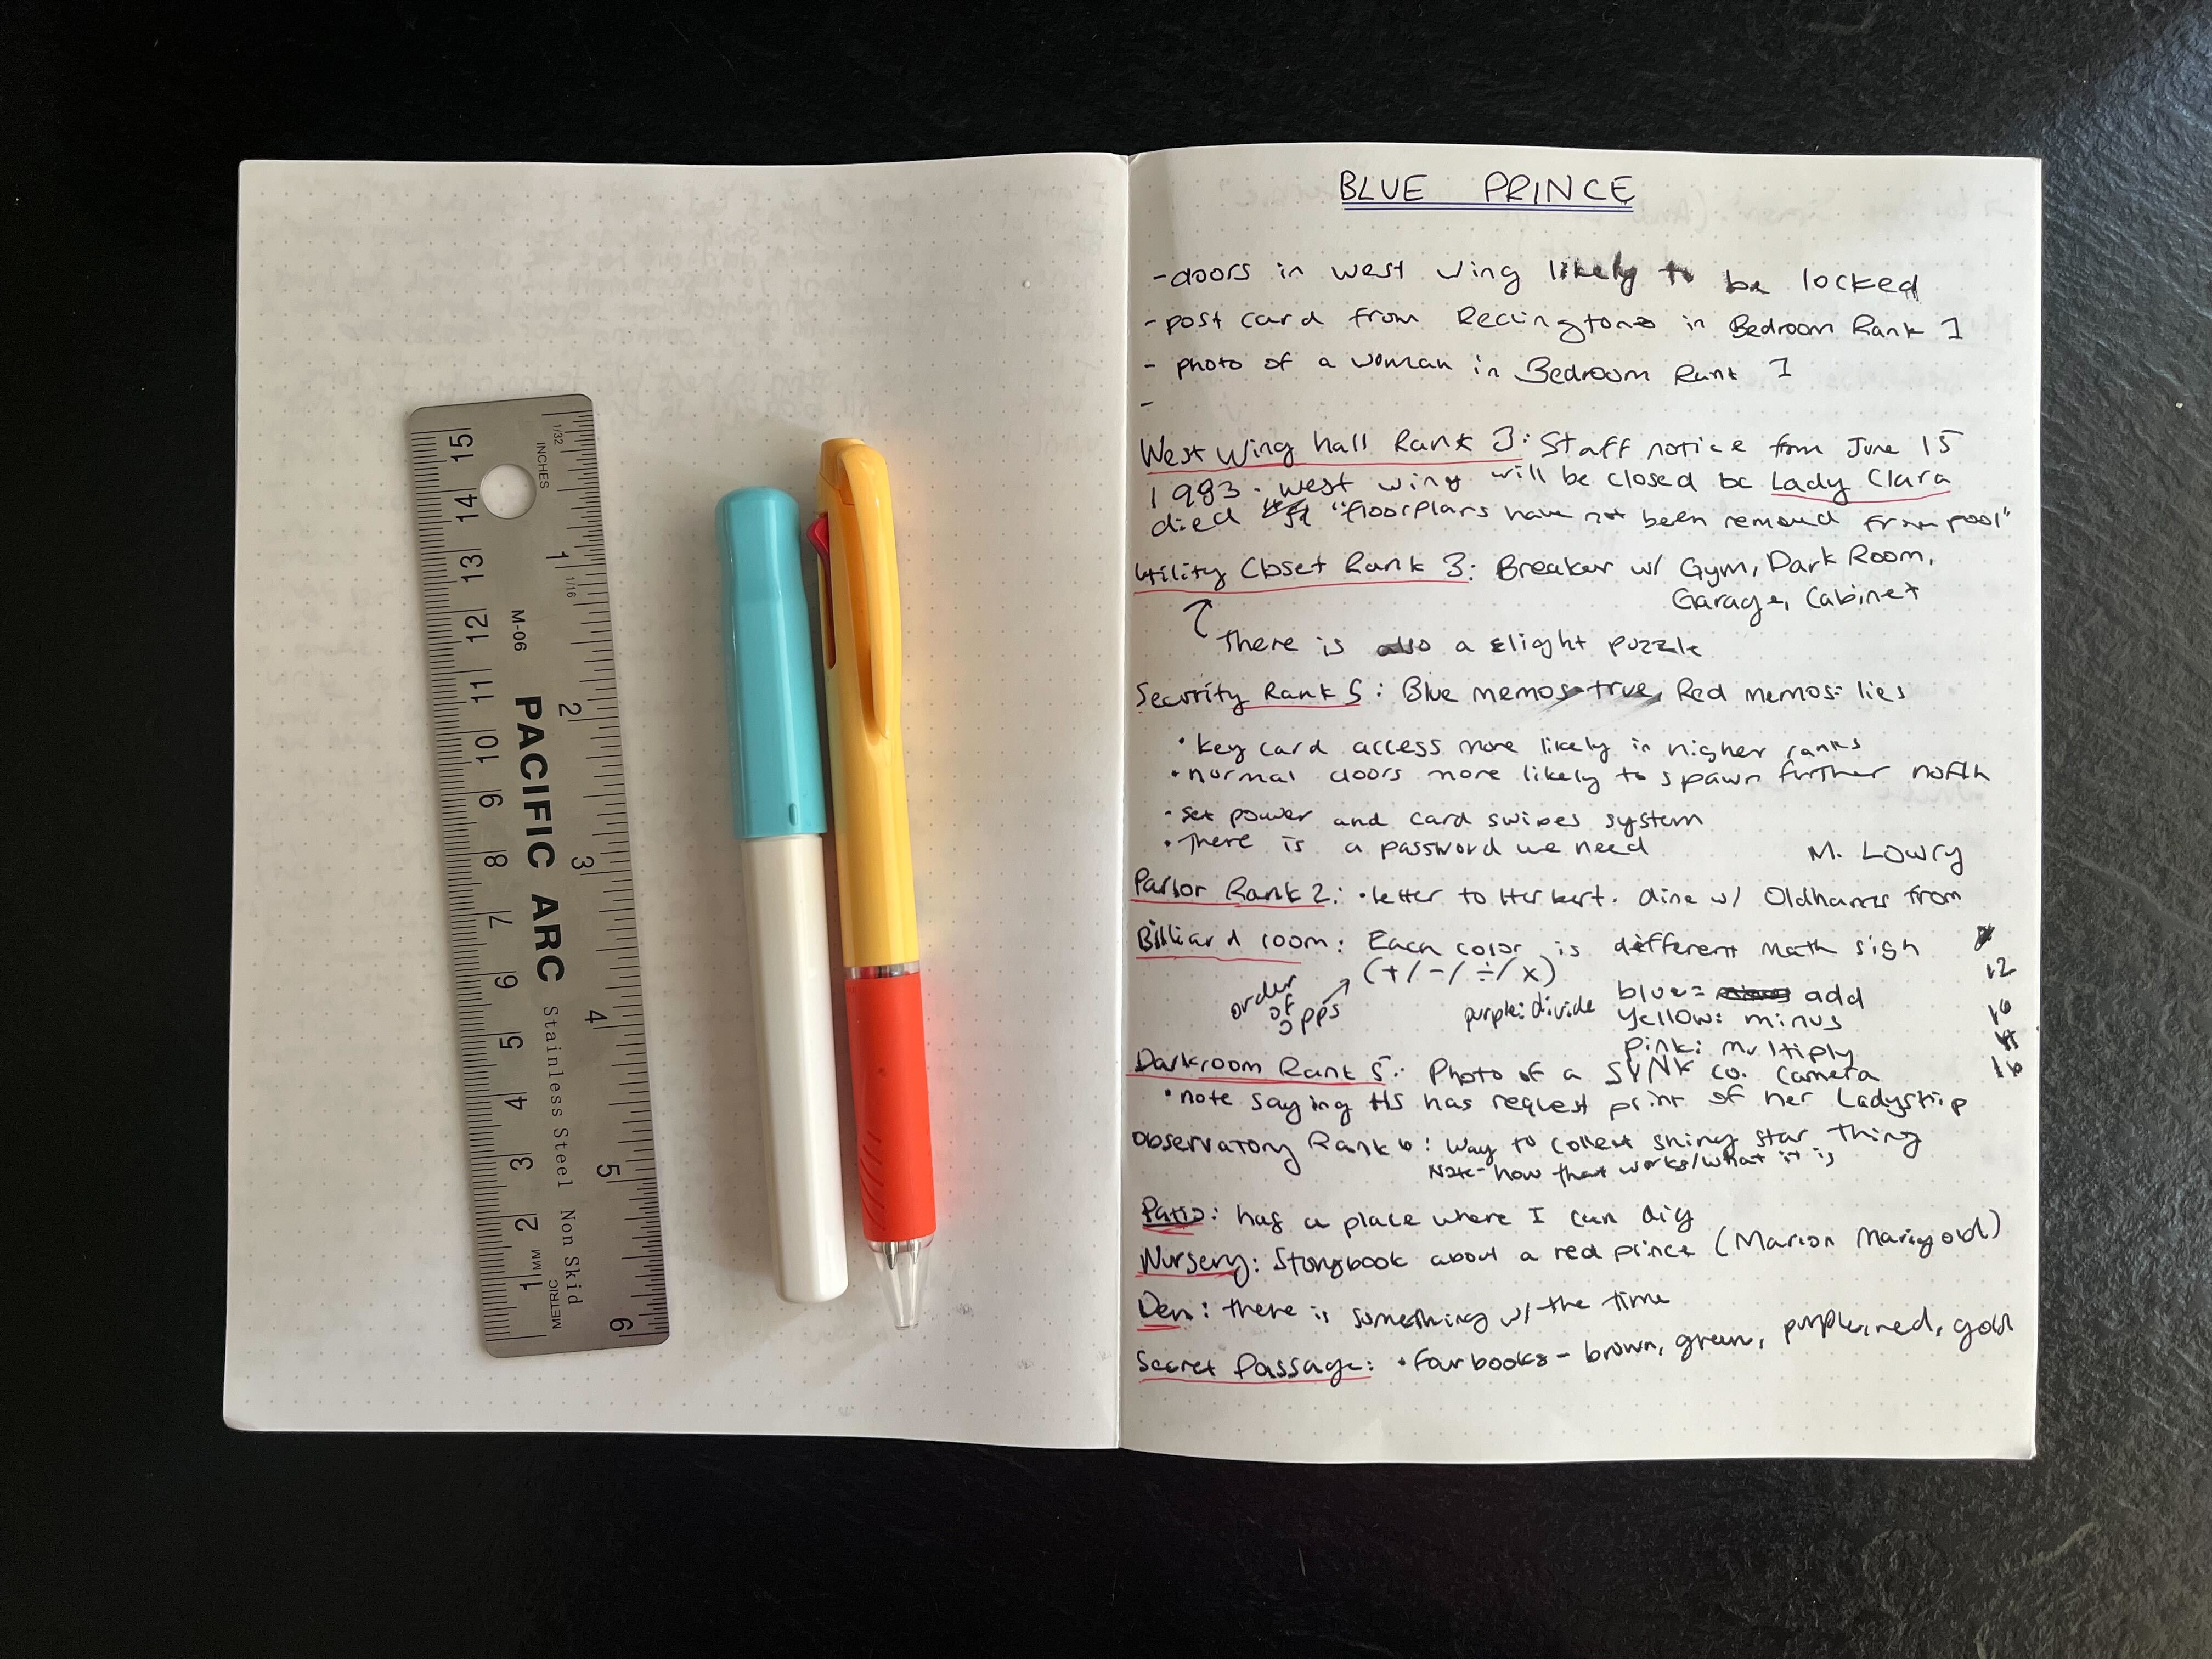 15
14
13
12
11
10
9
8
7
6
5
4
3
2
1 MM
METRIC
1/32
INCHES
1
1/16
M-06
2
3
4
5
6
PACIFIC ARC
Stainless Steel Non Skid
BLUE PRINCE
- doors in west wing likely to be locked
- post card from in Bedroom Rank 1
- photo of a woman in Bedroom Rank 1
-
West Wing hall Rank 3: Staff notice from June 15
1983. west wing will be closed bc Lady Clara
died "floorplans have not been removed from pool"
Utility Closet Rank 3: Breaker w/ Gym, Dark Room,
Garage, Cabinet
There is also a slight puzzle
Security Rank 5: Blue memos true, Red memos: lies
• key card access more likely in higher ranks
• normal doors more likely to spawn further north
• set power and card swipes system
• There is a password we need
M. Lowry
Parlor Rank 2: • letter to Herbert. dine w/ from
Billiard room: Each color is different math sign
(+/-/÷/x)
order of opps
12
purple: divide
blue = add
yellow: minus
16
pink: multiply
Darkroom Rank 5: Photo of a SYNK co. Camera
16
• note saying HS has request print of her Ladyship
Observatory Rank 6: Way to collect shiny star thing
Note- how that works/what it is
Patio: has a place where I can dig
Nursery: Storybook about a red prince (Marion Marigold)
Den: there is something w/ the time
Secret Passage: • four books - brown, green, purple, red, gold